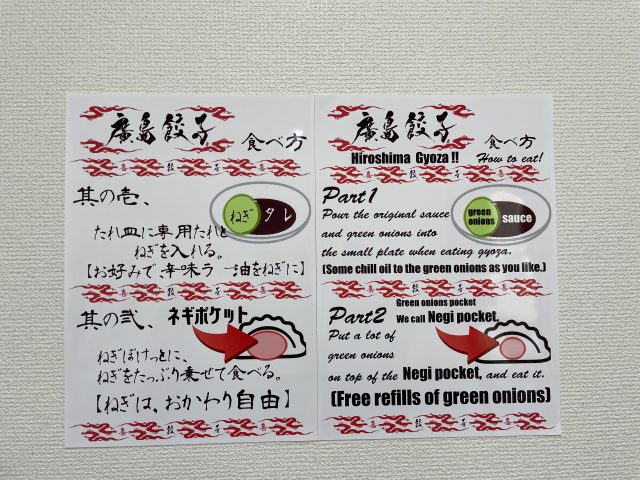 廣島餃子
食べ方
其の壱、
ねぎ タレ
たれ皿に専用たれと
ねぎを入れる。
【お好みで辛味ラー油をねぎに】
其の弐、
ネギポケット
ねぎぽけっとに、
ねぎをたっぷり乗せて食べる。
【ねぎは、おかわり自由】
廣島餃子
食べ方
Hiroshima Gyoza !!
How to eat!
Part1
green
onions
sauce
Pour the original sauce
and green onions into
the small plate when eating gyoza.
(Some chill oil to the green onions as you like.)
Green onions pocket
Part2
We call Negi pocket.
Put a lot of
green onions
on top of the Negi pocket, and eat it.
(Free refills of green onions)